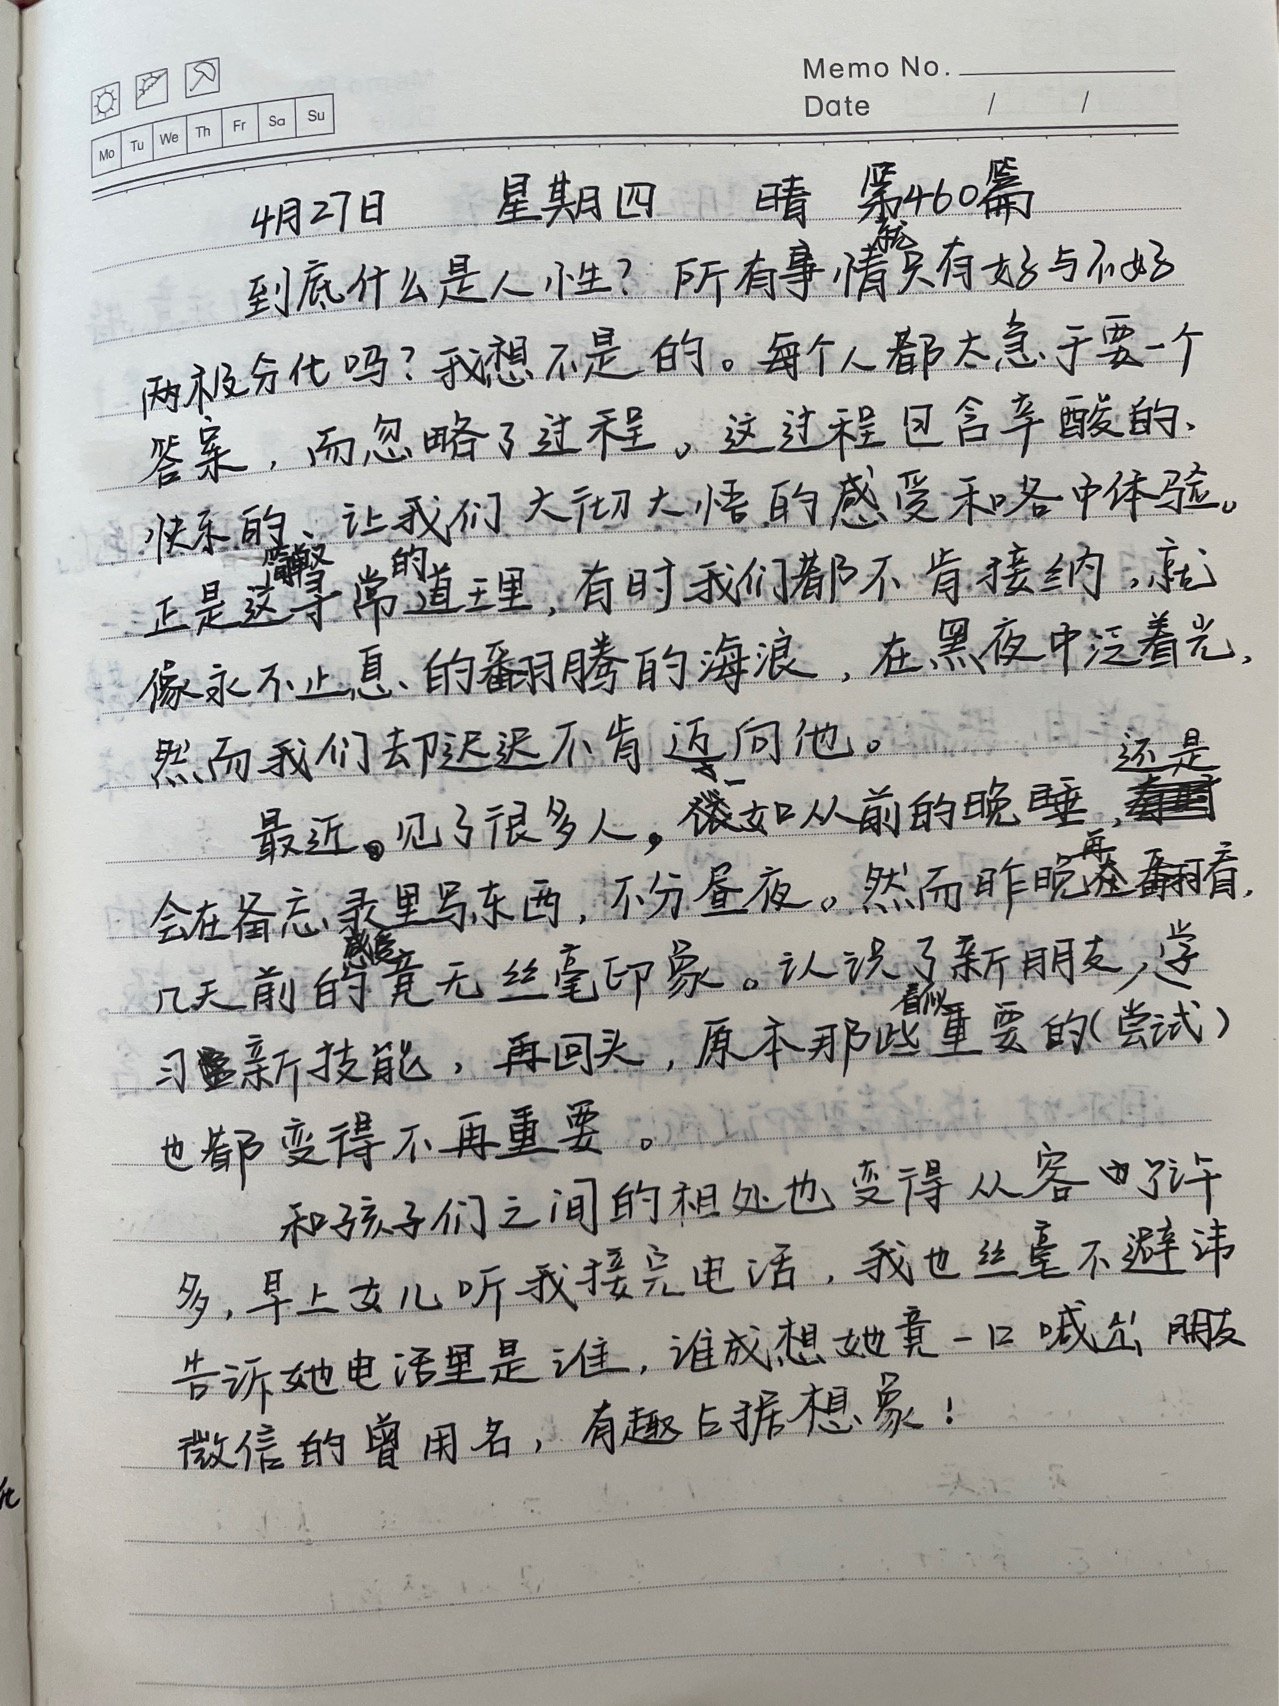 Memo No.
Date / /
Mo Tu We Th Fr Sa Su
4月27日 星期四 晴 第460篇
到底什么是人性？所有事情就只有好与不好
两极分化吗？我想不是的。每个人都太急于要一个
答案，而忽略了过程。这过程包含辛酸的、
快乐的、让我们大彻大悟的感受和各中体验。
正是这寻常的道理，有时我们都不肯接纳，就
像永不止息、的翻腾的海浪，在黑夜中泛着光，
然而我们却迟迟不肯迈向他。
最近。见了很多人，如从前的晚睡，还是
会在备忘录里写东西，不分昼夜。然而昨晚再翻看，
几天前的感觉竟无丝毫印象。认识了新朋友，学
习新技能，再回头，原本那些看似重要的（尝试）
也都变得不再重要。
和孩子们之间的相处也变得从容了许
多，早上女儿听我接完电话，我也丝毫不避讳
告诉她电话里是谁，谁成想她竟一口喊出朋友
微信的曾用名，有趣占据想象！